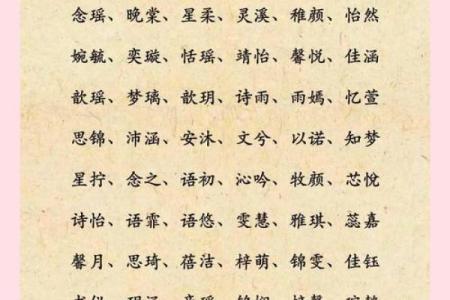 念瑶、晚棠、星柔、灵溪、稚颜、怡然
婉毓、奕璇、恬瑶、靖怡、馨悦、佳涵
歆瑶、梦璃、歆玥、诗雨、雨嫣、忆萱
思锦、沛涵、安沐、文兮、以诺、知梦
星拧、念之、语初、沁吟、牧颜、芯悦
诗怡、语霏、语悠、雯慧、雅琪、蕊嘉
馨月、思琦、蓓洁、梓萌、锦雯、佳钰